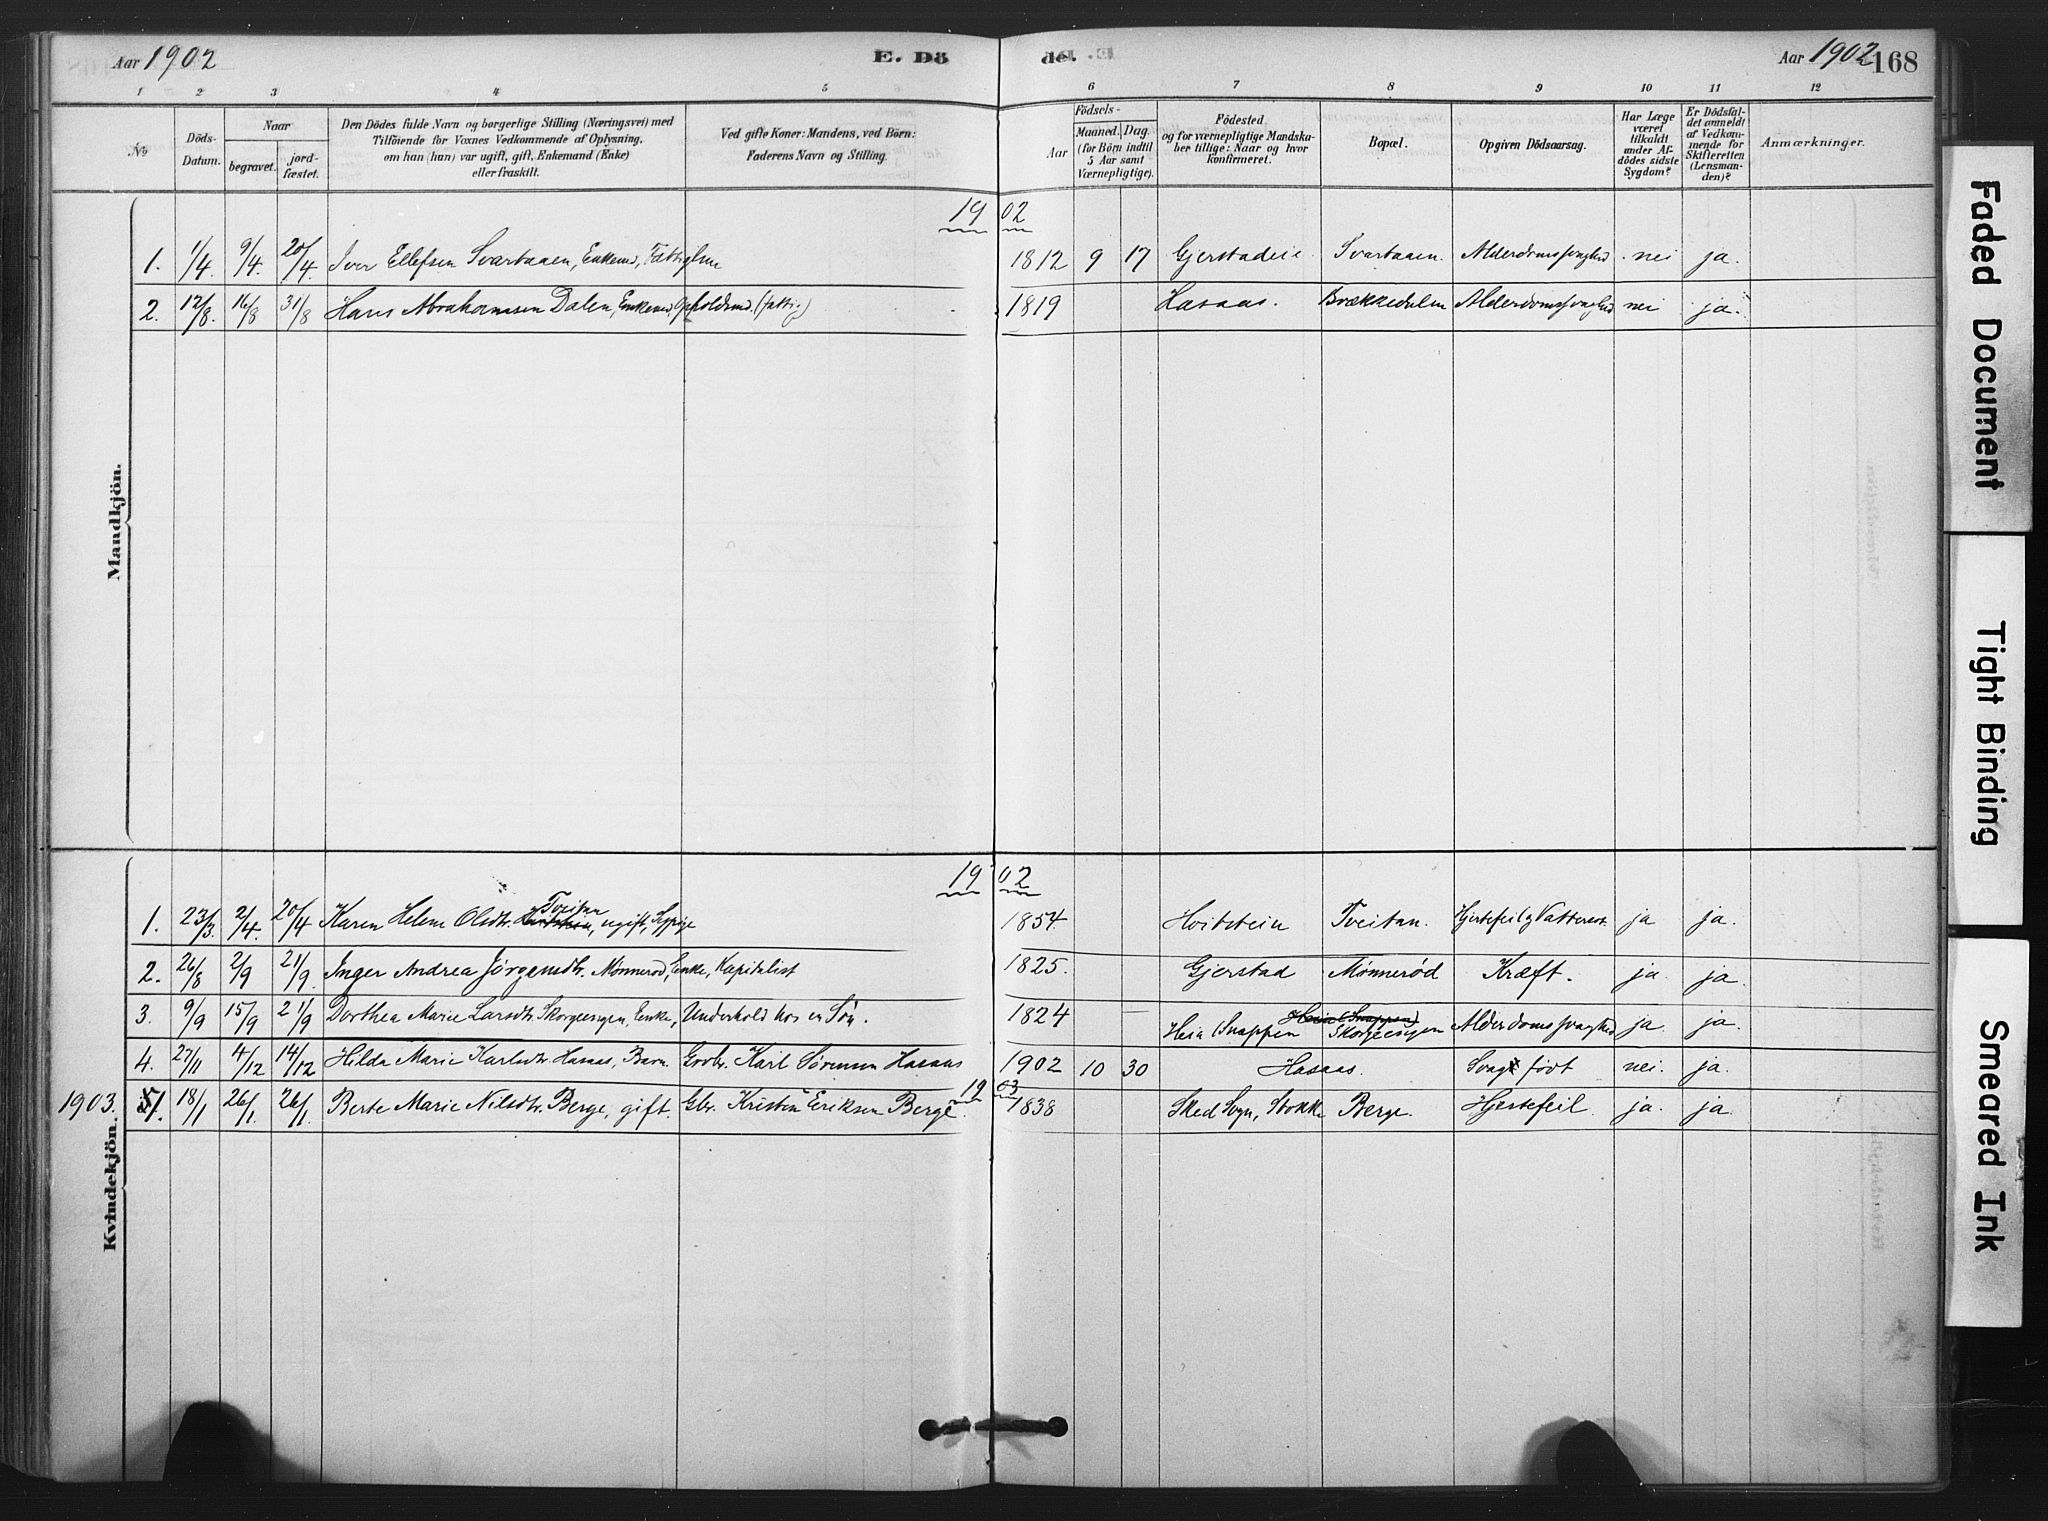 Aar 1902
E. Dö
de.
Aar 1902
168
1 2 3 4 5 6 7 8 9 10 11 12
No
Döds-Datum.
Naar
begravet.
jordfæstet.
Den Dödes fulde Navn og borgerlige Stilling (Næringsvei) med
Tilföiende for Voxnes Vedkommende af Oplysning,
om han (hun) var ugift, gift, Enkemand (Enke)
eller fraskilt.
Ved gifte Koner: Mandens, ved Börn:
Faderens Navn og Stilling.
Födsels-
Aar
Maaned. Dag.
(for Börn indtil
5 Aar samt
Værnepligtige).
Födested
og for værnepligtige Mandska-
ber tillige: Naar og hvor
konfirmeret.
Bopæl.
Opgiven Dödsaarsag.
Har Læge
været
tilkaldt
under Af-
dödes sidste
Sygdom?
Er Dödsfal-
det anmeldt
af Vedkom-
mende for
Skifteretten
(Lensman-
den)?
Anmærkninger.
Mandkjön.
1902
1. 1/4. 9/4. 20/4. Iver Ellefsen Svartaaen, Enkemd, 1812 9 17 Gjerstadeie Svartaaen. Alderdomssvaghed nei ja.
2. 12/8. 16/8 31/8 Hans Abrahamsen Dalen, Enkemd. Opholdsmd. (fattig) 1819 Hasaas. Brækkedalen Alderdomssvaghed nei ja.
Kvindekjön.
1902
1. 23/3. 2/4. 20/4 Karen Helene Olsdtr. Tveitan, ugift, Sypige 1854. Hoitstein Tveitan. Hjertefeil og Vattersot. ja ja.
2. 26/8 2/9 21/9. Inger Andrea Jörgensdtr. Mønnerød, Enke, Kapitalist 1825. Gjerstad Mønnerød Kræft. ja. ja.
3. 9/9 15/9 21/9 Dorthea Marie Larsdtr. Skorgeengen, Enke, Underhold hos en Søn. 1824 – Heia (Snappen Heia (Snappen) Skorgeengen Alderdomssvaghed ja. ja.
4. 27/11 4/12 14/12 Hilda Marie Karlsdtr. Hasaas, Barn. Grbr. Karl Sørensen Hasaas 1902 10 30 Hasaas. Svagt født nei. ja.
1903. 1. 18/1 26/1. 26/1. Berte Marie Nilsdtr. Berge, gift. Gbr. Kristen Eriksen Berge. 1903 1838 Sked Sogn, Stokke Berge. Hjertefeil ja. ja.
Faded Document
Tight Binding
Smeared Ink